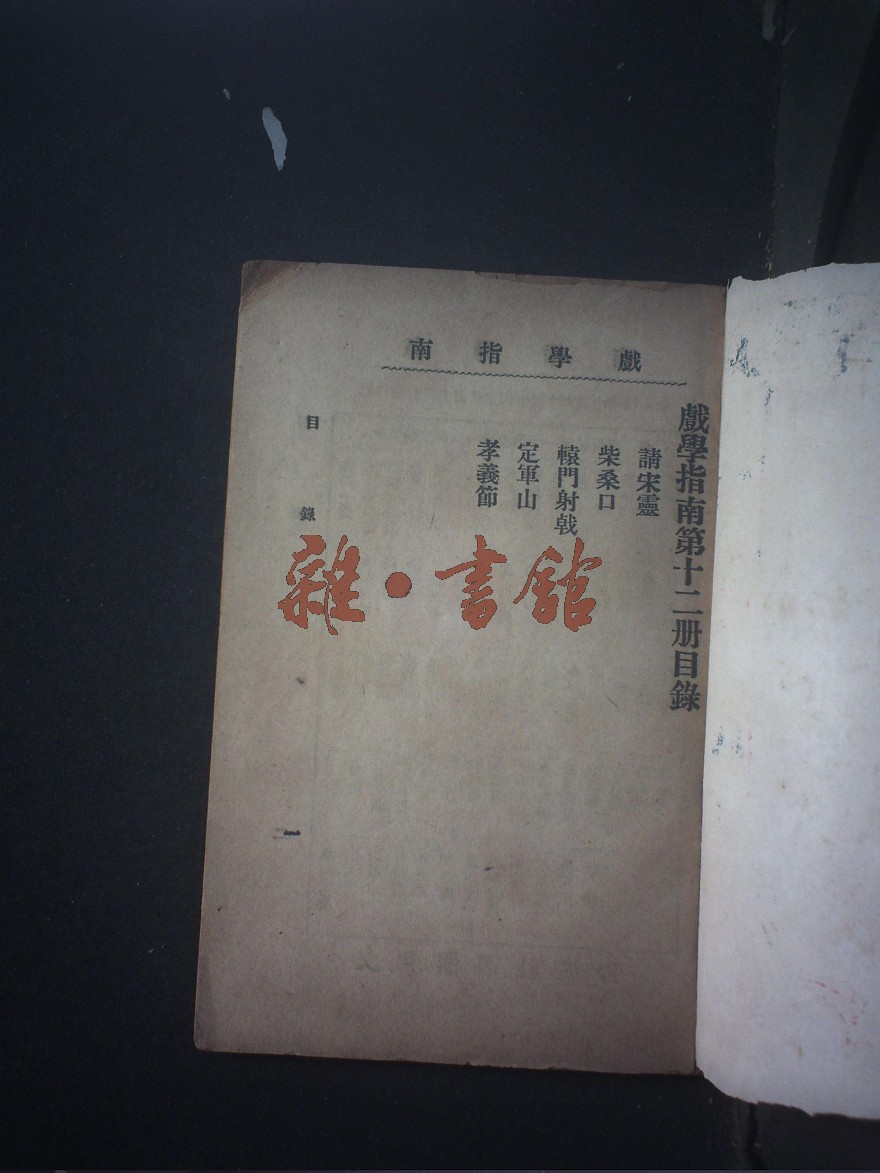 戲學指南
戲學指南第十二册目錄
請宋靈
柴桑口
轅門射戟
定軍山
孝義節
目錄
一
雜·書館